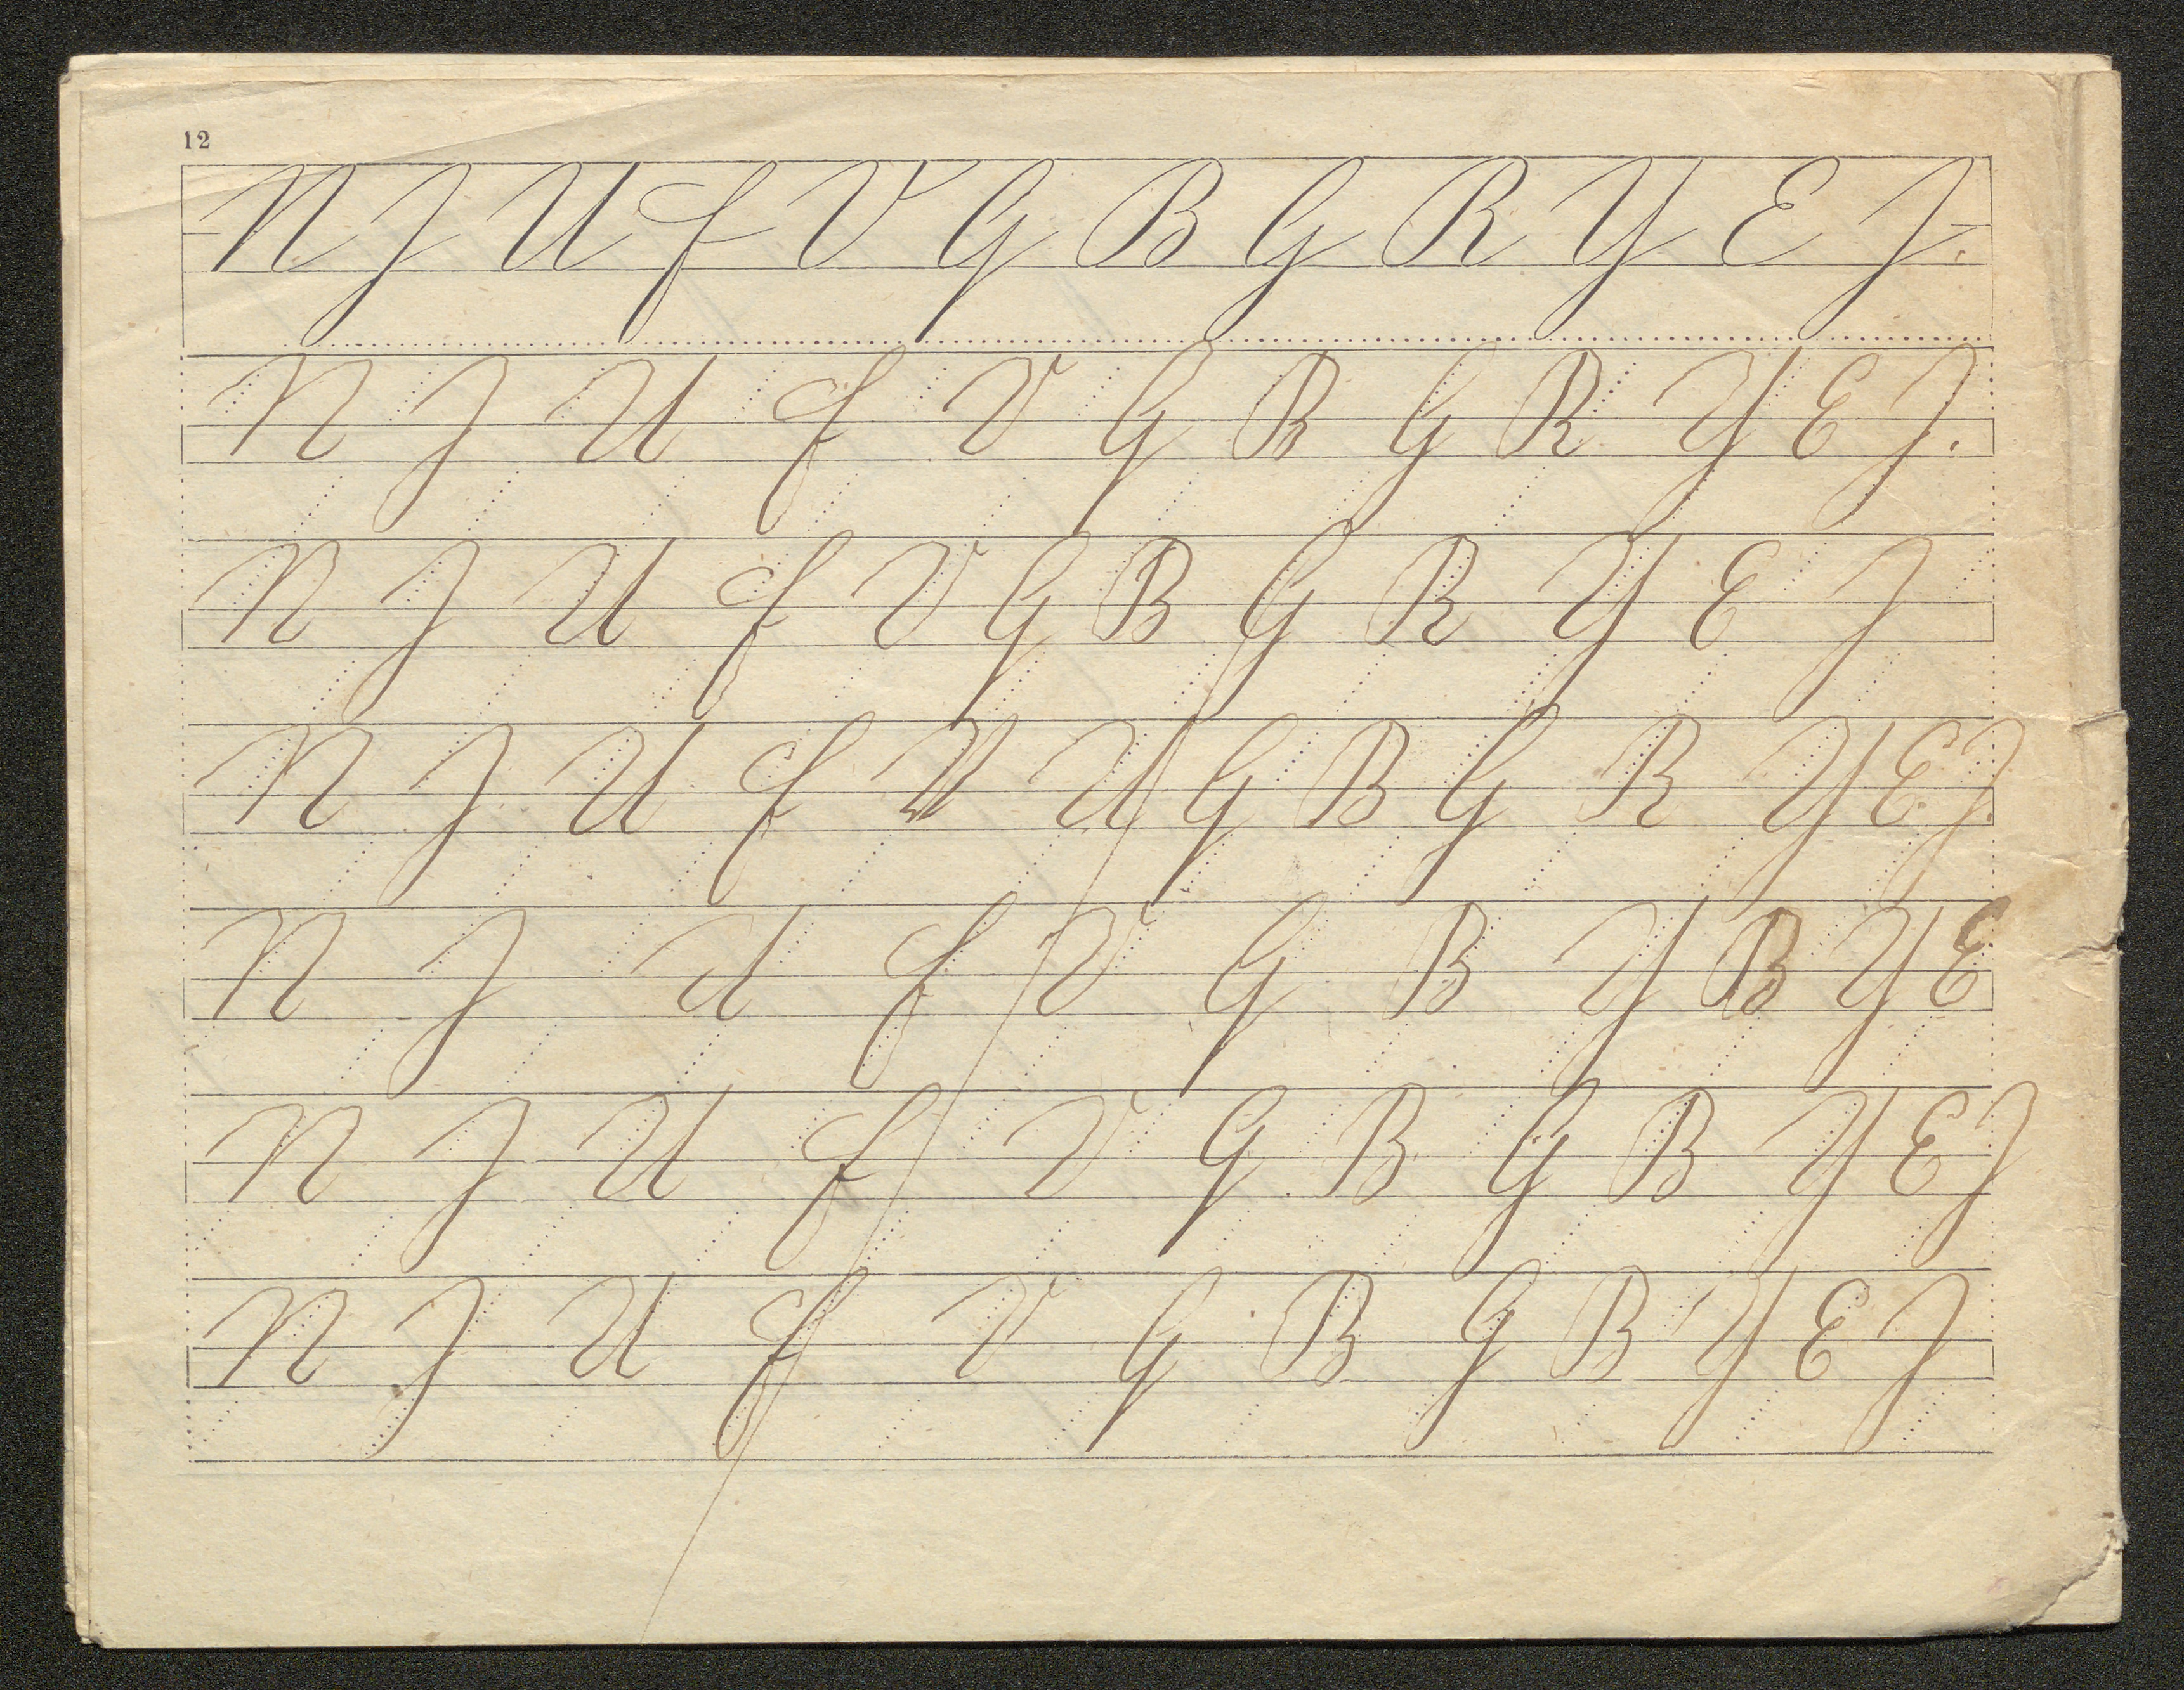 12
N J U f V G B G R Y E J.
N J U f V G B G R Y E J.
N J U f V G B G R Y E J
N J U f V U G B G R Y E J.
N J U f V G B Y B Y E
N J U f V G B G B Y E J
N J U f V G B G B Y E J